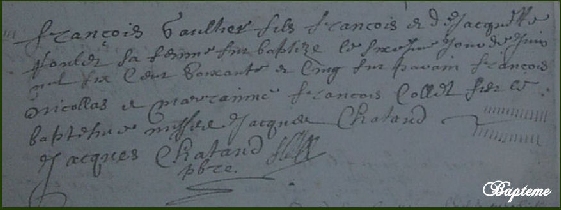 françois Gaultier fils françois et de Jacquette
sa femme fut baptizé le sixiesme jour de Juin
mil six cent soixante et cinq fut parain françois
Nicollas et marrainne françois Collet fist le
baptesme missire Jacques Chatand
Jacques Chatand
pbre
Bapteme